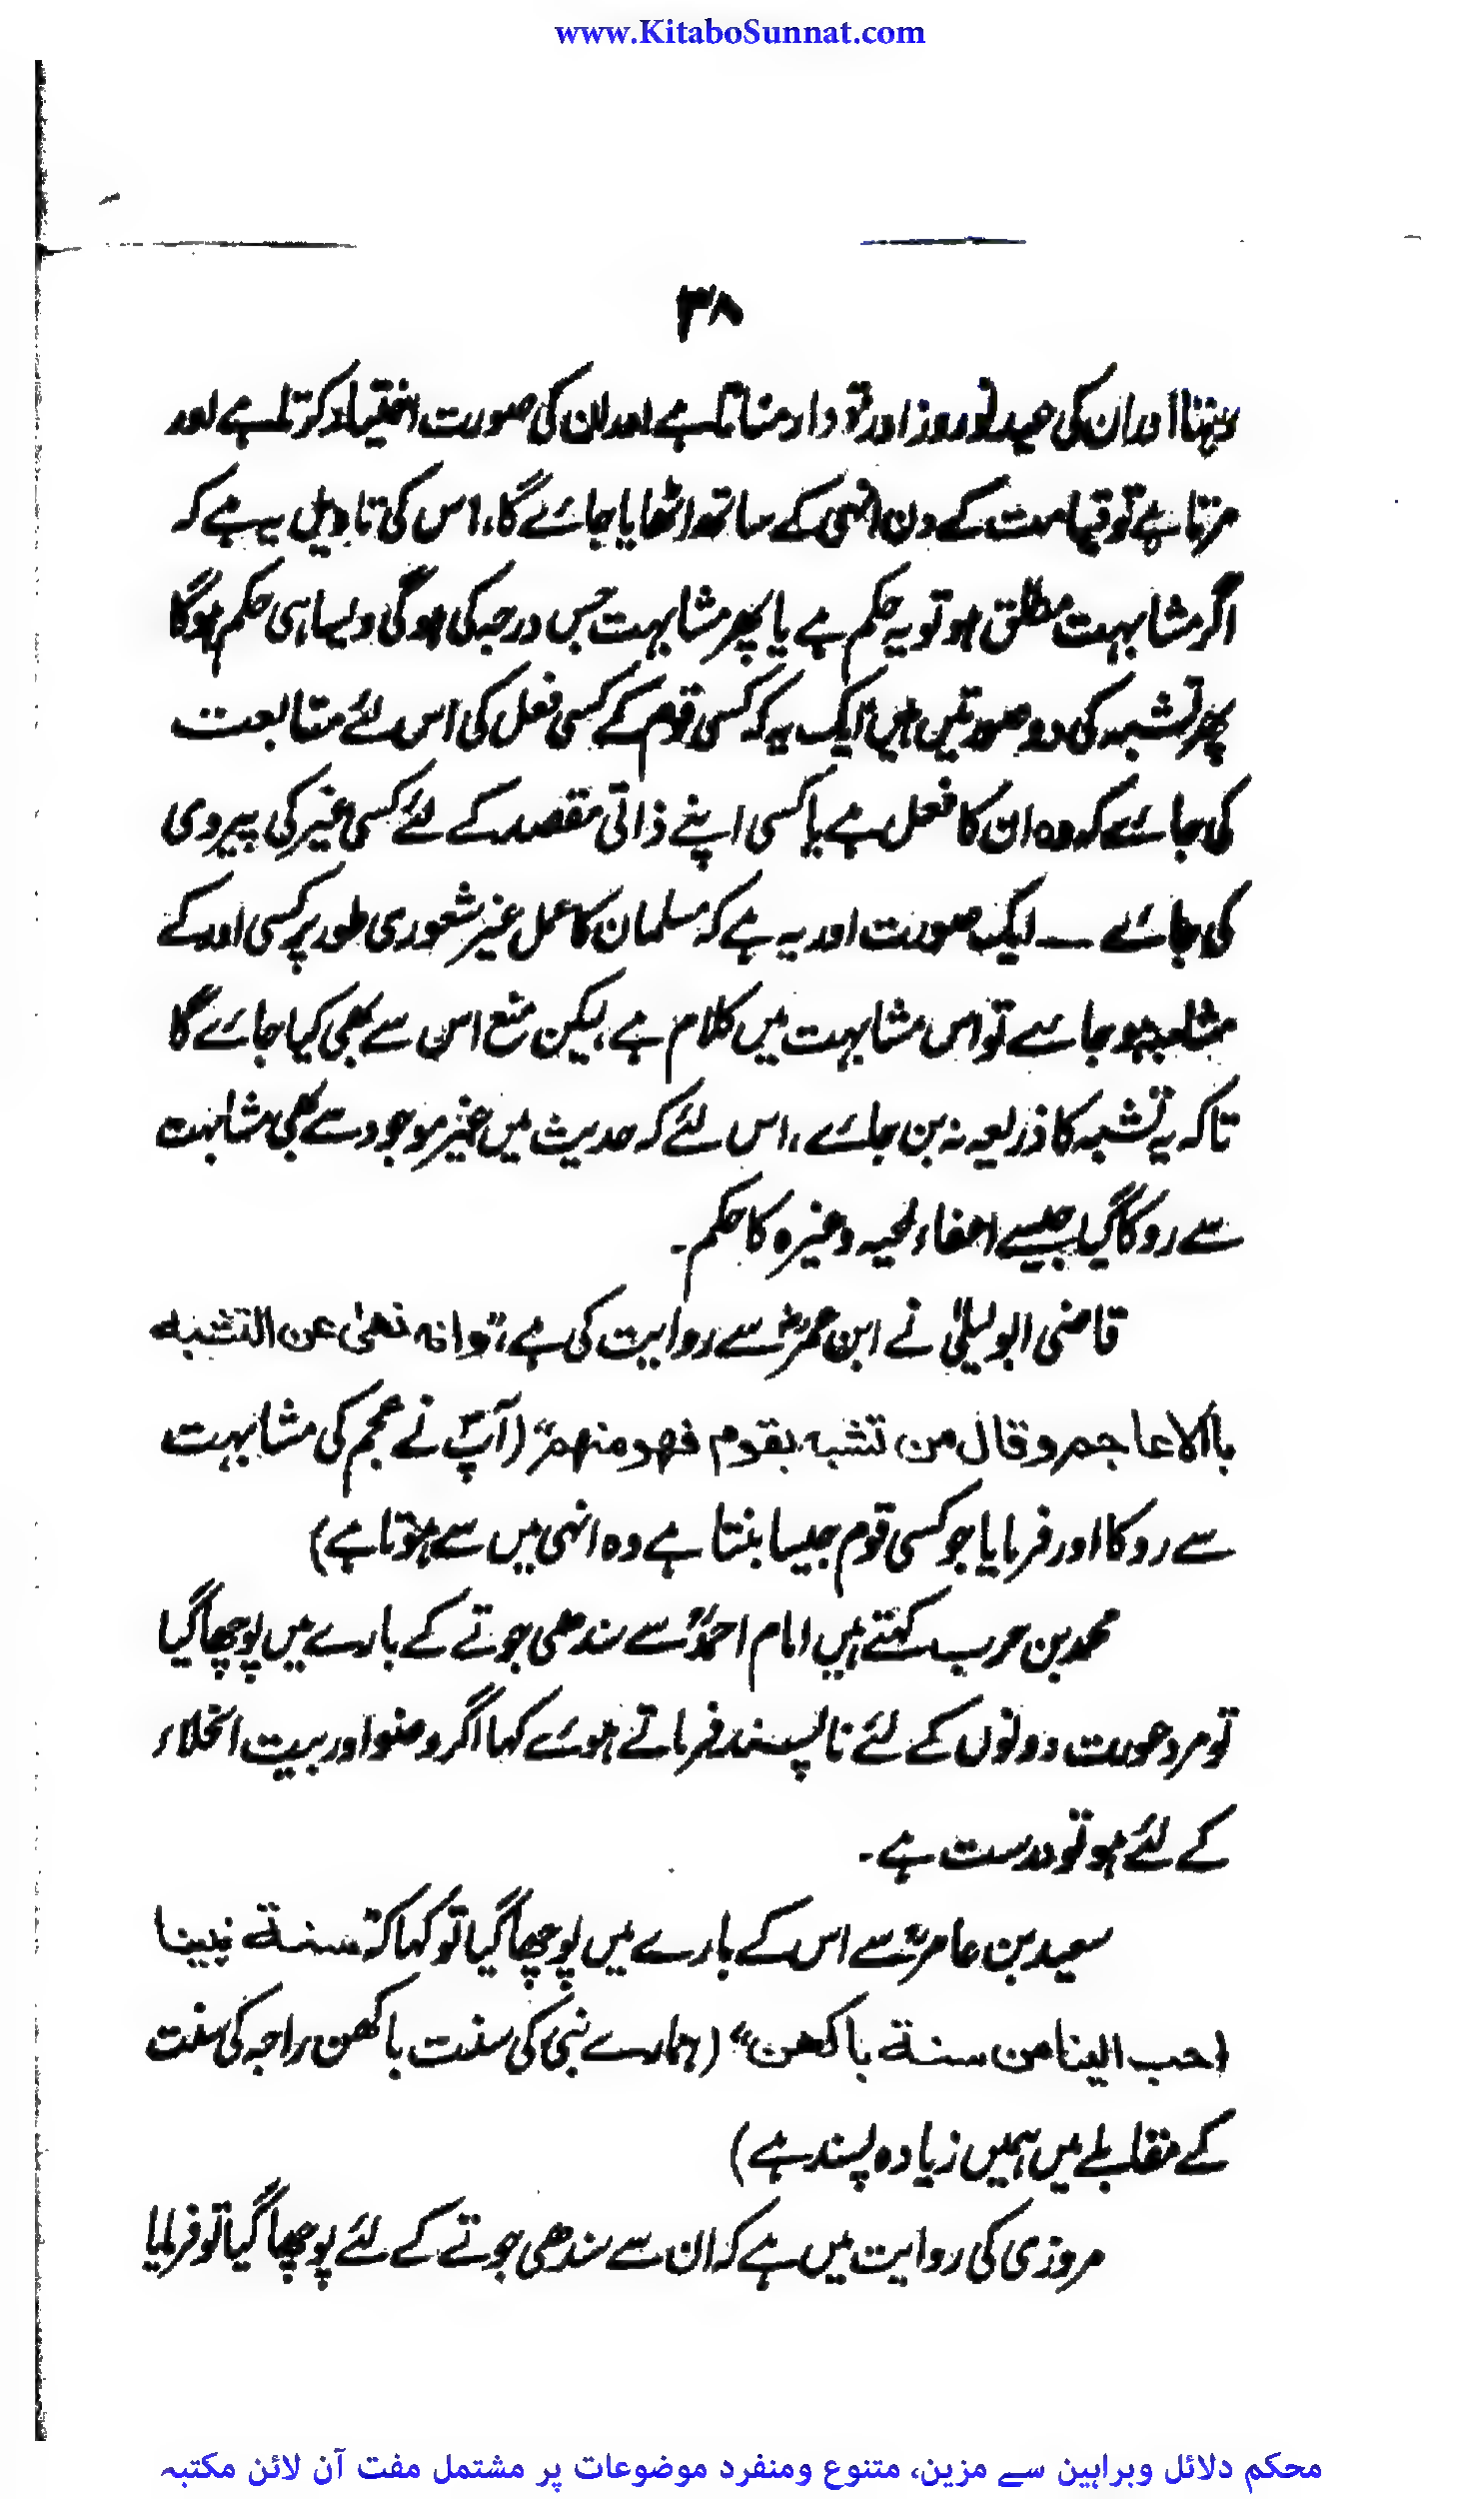 www.KitaboSunnat.com
۳۸
رہتا اور ان کی عید نوروز اور تہوار مناتا ہے اور ان کی صورت اختیار کرتا ہے اور
مرتا ہے تو قیامت کے دن انہی کے ساتھ اٹھایا جائے گا، اس کی تاویل یہ ہے کہ
اگر مشابہت مطلق ہو تو یہ حکم ہے یا پھر مشابہت جس درجہ کی ہوگی ویسا ہی حکم ہوگا
پھر تشبہ کی دو صورتیں ہیں ایک یہ کہ کسی قوم کے کسی فعل کی اس لئے متابعت
کی جائے کہ وہ ان کا فعل ہے یا کسی اپنے ذاتی مقصد کے لئے کسی غیر کی پیروی
کی جائے ــ ایک صورت اور یہ ہے کہ مسلمان کا عمل غیر شعوری طور پر کسی اور کے
مشابہ ہو جائے تو اس مشابہت میں کلام ہے، لیکن منع اس سے بھی کیا جائے گا
تاکہ یہ تشبہ کا ذریعہ نہ بن جائے، اس لئے کہ حدیث میں غیر موجود سے بھی مشابہت
سے روکا گیا جیسے احفاء لحیہ وغیرہ کا حکم۔
قاضی ابو یعلیٰؒ نے ابن عمرؓ سے روایت کی ہے، "وانہ نھیٰ عن التشبہ
بالاعاجم و قال من تشبہ بقوم فھو منھم" (آپؐ نے عجم کی مشابہت
سے روکا اور فرمایا جو کسی قوم جیسا بنتا ہے وہ انہی میں سے ہوتا ہے)
محمد بن حرب کہتے ہیں امام احمدؒ سے سندھی جوتے کے بارے میں پوچھا گیا
تو مرد عورت دونوں کے لئے ناپسند فرماتے ہوئے کہا اگر وضو اور بیت الخلاء
کے لئے ہو تو درست ہے۔
سعید بن عامرؒ سے اس کے بارے میں پوچھا گیا تو کہا کہ "سنة نبینا
احب الینا من سنة باکھن" (ہمارے نبی کی سنت باکھن راجہ کی سنت
کے مقابلے میں ہمیں زیادہ پسند ہے)
مروزی کی روایت میں ہے کہ ان سے سندھی جوتے کے لئے پوچھا گیا تو فرمایا
محکم دلائل وبراہین سے مزین، متنوع ومنفرد موضوعات پر مشتمل مفت آن لائن مکتبہ